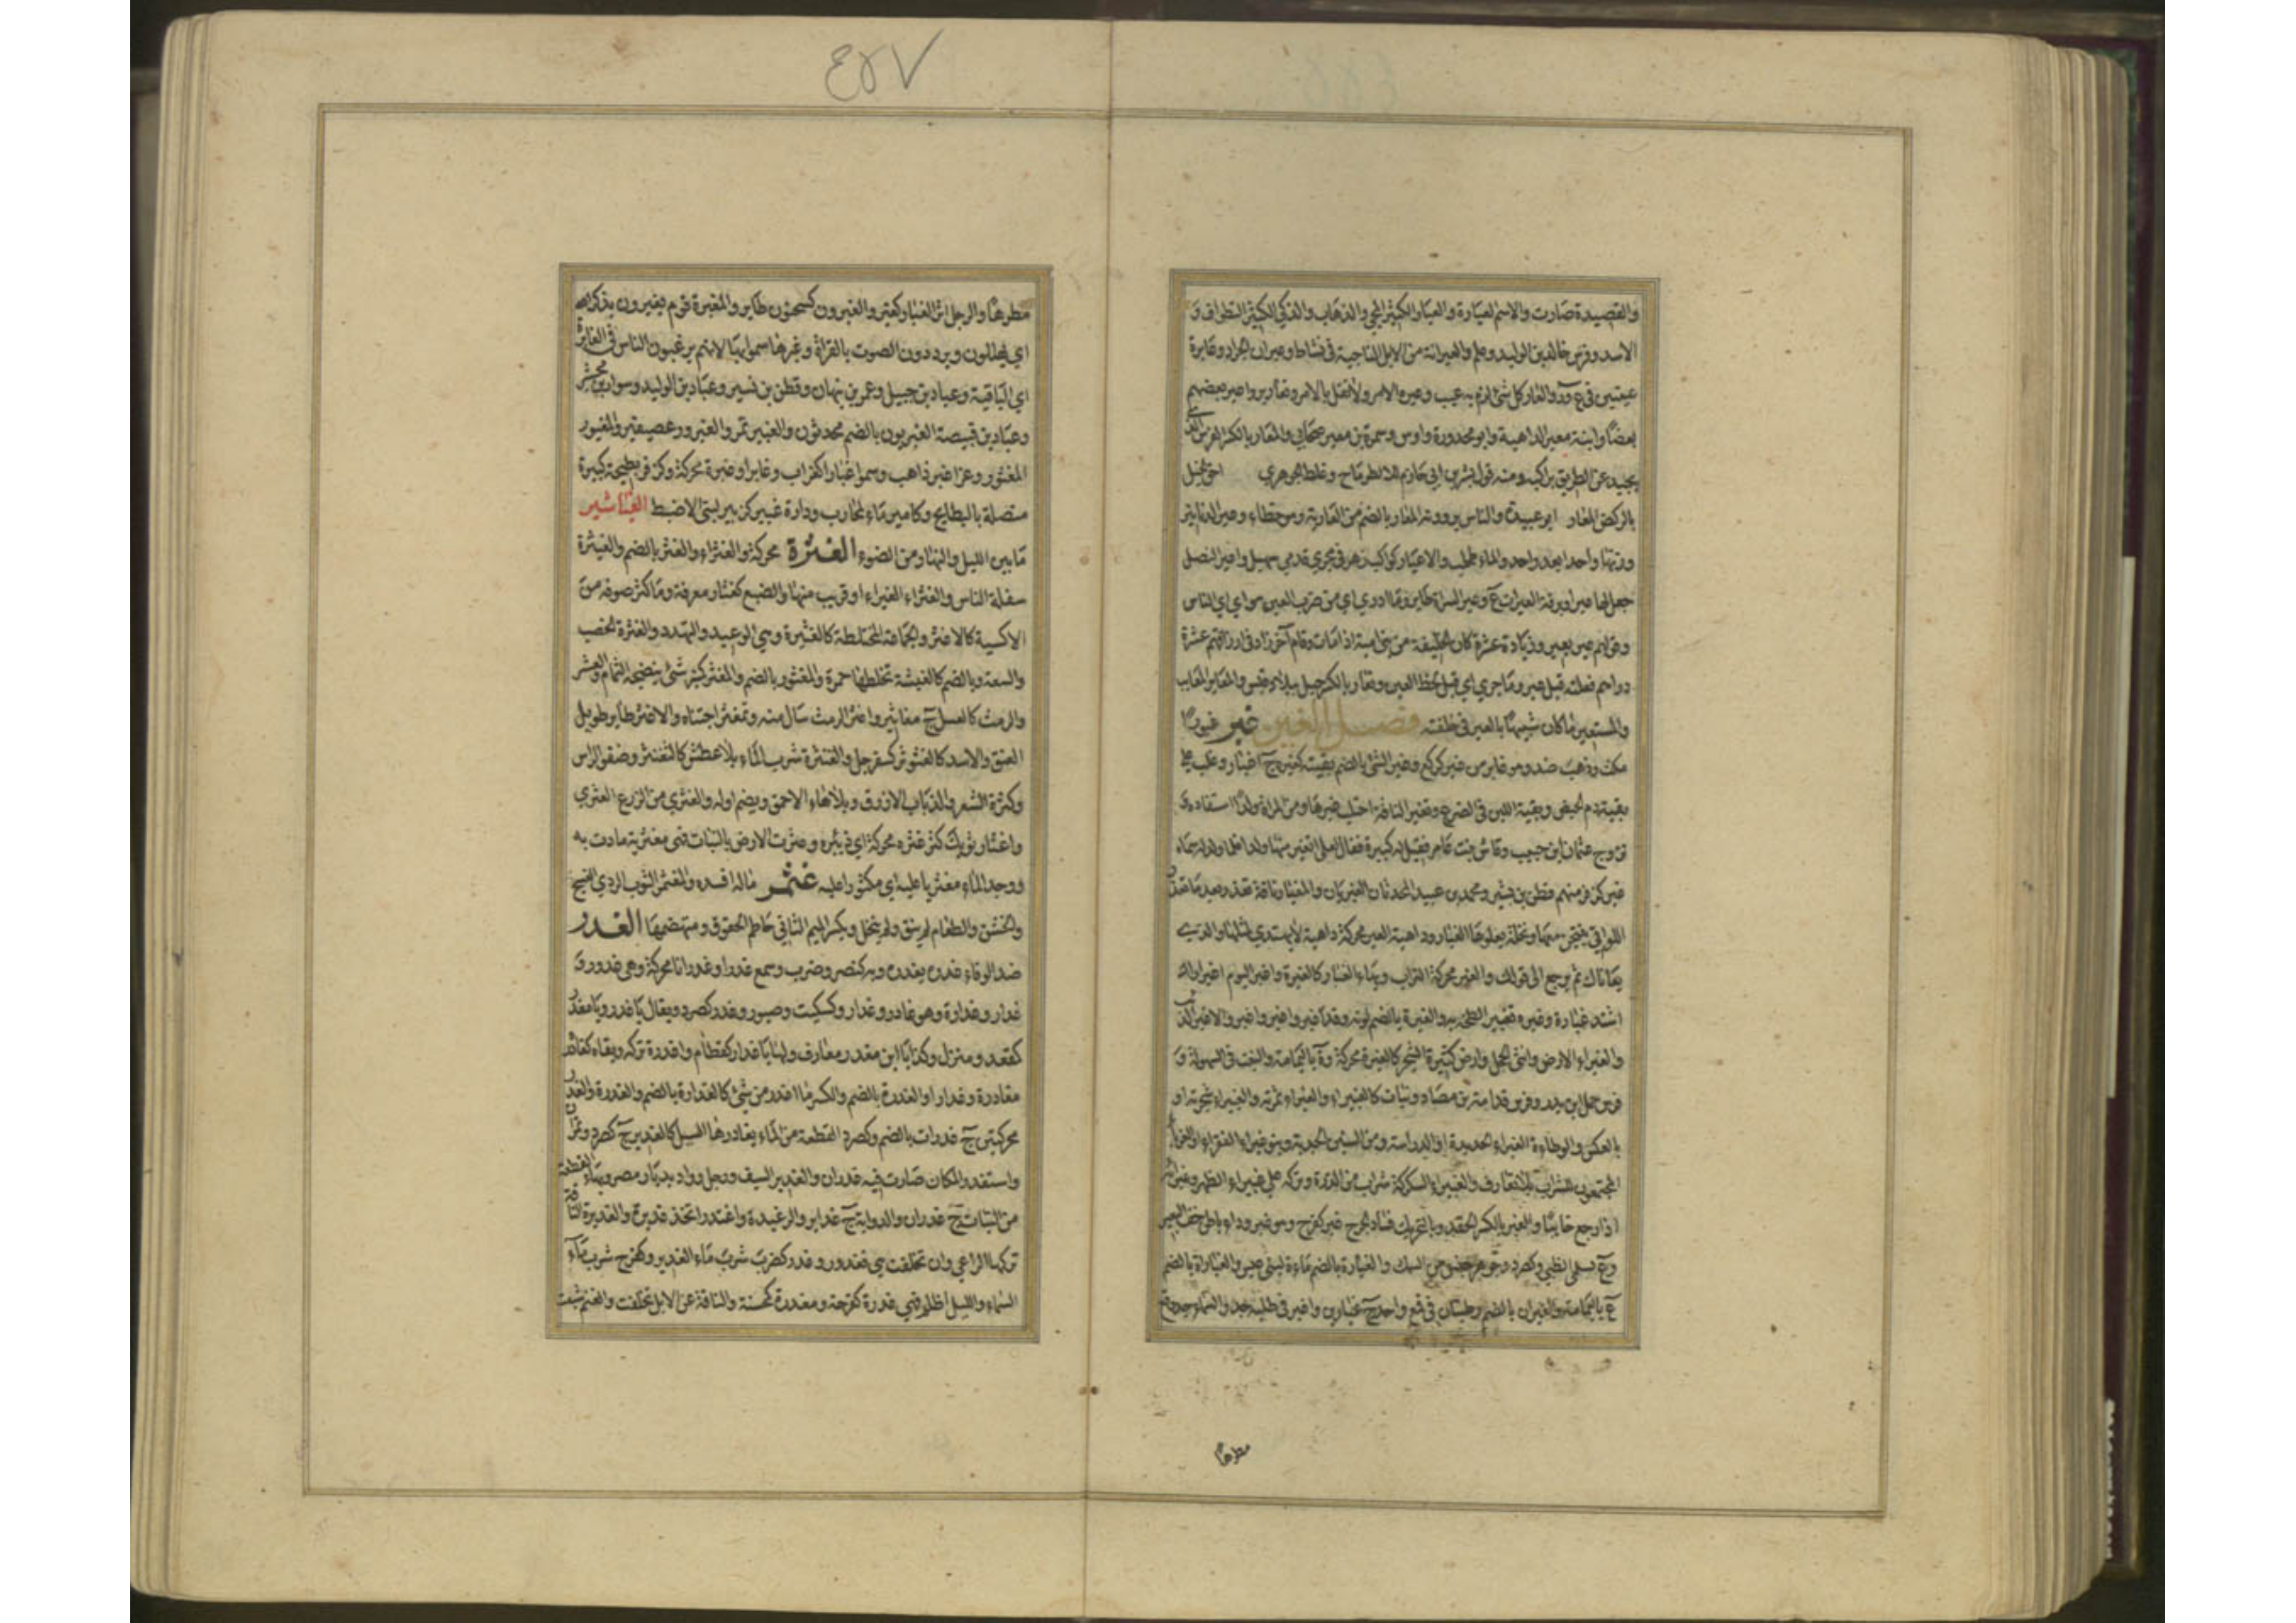 والقصيدة صارت والاسم العيارة والعيار الكثير المجي والذهاب والذكي الكثير التطواف و
الاسد وفرس خالد بن الوليد وعلم والعيرانة من الابل الناجية في نشاط وعيران الجراد وعايرة
عينين في ع ور والعار كل شئ لزم به عيب وعيره الامر ولا تقل بالامر وتعايروا عير بعضهم
بعضا وابنة معير الداهية وابو محذورة واوس وسمرة بن معير صحابي والمعار بالكسر الفرس الذي
يحيد عن الطريق براكبه ومنه قول بشر بن ابي خازم لا الطرماح وغلط الجوهري احق الخيل
بالركض المعار ابو عبيدة والناس يروونه المعار بالضم من العارية وهو خطاء وعير الدنانير
وزنها واحدا بعد واحد والماء طحلب والاعيار كواكب زهر في مجرى قدمي سهيل واعير النصل
جعل لها عيرا وبرقة العيرات ع وعير السراة طاير وما ادري اي من ضرب العير هو اي اي الناس
وقولهم عير بعير وزيادة عشرة كان الخليفة من بني امية اذا مات وقام آخر زاد في ارزاقهم عشرة
دراهم فعلته قبل عير وما جرى اي قبل لحظ العين وتعار بالكسر جبل ببلاد قيس والمعاير المعايب
والمستعير ما كان شبيها بالعير في خلقته فصل الغين غبر غبورا
مكث وذهب ضد وهو غابر من غبر كركع وغبر الشئ بالضم بقيته كغبره ج اغبار وغلب على
بقية دم الحيض وبقية اللبن في الضرع وتغبر الناقة احتلب غبرها ومن المراة ولدا استفاده و
تزوج عثمان بن حبيب رقاش بنت عامر فقيل له كبيرة فقال لعلي اتغبر منها ولدا فلما ولد له سماه
غبر كزفر منهم قطن بن نسير ومحمد بن عبيد المحدثان الغبريان والمغبار ناقة تغزر بعد ما تغزر
اللواتي ينتجن معها ونخلة يعلوها الغبار وداهية الغبر محركة داهية لا يهتدى لمثلها والذي
يعاندك ثم يرجع الى قولك والغبر محركة التراب وبهاء الغبار كالغبرة واغبر اليوم اغبرارا
اشتد غباره وغبره تغبيرا لطخه به والغبرة بالضم لونه وقد اغبر واغبر والاغبر الذئب
والغبراء الارض وانثى الحجل وارض كثيرة الشجر كالغبرة محركة وة باليمامة والنبت في السهولة و
فرس حمل بن بدر وفرس قدامة بن مصاد ونبات كالغبيراء والغبراء ثمرته والغبيراء شجرته او
بالعكس والوطاءة الغبراء الجديدة او الدراسة ومن السنين الجدبة وبنو غبراء الفقراء او الغرباء
المجتمعون للشراب بلا تعارف والغبيراء السكركة شراب من الذرة وتركه على غبيراء الظهر وغبرائه
اذا رجع خائبا والغبر بالكسر الحقد وبالتحريك فساد الجرح غبر كفرح وهو غبر وداء باطن خف البعير
وع بسلمى لطيئ وكصرد وجوهر جنس من السمك والغبارة بالضم ماءة لبني عبس والغبارات بالضم
ع باليمامة والغبران بالضم رطبتان في قمع واحد ج غبارين واغبر في طلبه جد والسماء جد وقع
مطرها
٤٥٧
مطرها والرجل اثار الغبار كغبر والغبرون كسحنون طاير والمغبرة قوم يغبرون بذكر الله
اي يهللون ويرددون الصوت بالقراءة وغيرها سموا بها لانهم يرغبون الناس في الغابرة
اي الباقية وعباد بن جميل وعمر بن نبهان وقطن بن نسير وعباد بن الوليد وسوار بن مجشر
وعباد بن قبيصة الغبريون بالضم محدثون والغبير تمر والغبرور عصيفير والمغبور
المغثور وعز اغبر ذاهب وسموا غبارا كغراب وغابرا وغبرة محركة وكزفر بطيحة كبيرة
متصلة بالبطايح وكامير ماء لمحارب ودارة غبير كزبير لبني الاضبط الغباشير
ما بين الليل والنهار من الضوء الغثرة محركة والغثراء والغثر بالضم والغيثرة
سفلة الناس والغثراء الغبراء او قريب منها والضبع كغثار معرفة وما كثر صوفه من
الاكسية كالاغثر والجماعة المختلطة كالغيثرة وهي الوعيد والتهدد والغثرة الخصب
والسعة وبالضم كالغبشة تخلطها حمرة والمغثور بالضم والمغثر كمنبر شئ ينضحه الثمام والعشر
والرمث كالعسل ج مغاثير واغثر الرمث سال منه وتمغثر اجتناه والاغثر طاير طويل
العنق والاسد كالغثوثر كسفرجل والغنثرة شرب الماء بلا عطش كالتغنثر وضفو الراس
وكثرة الشعر والذباب الازرق وبلا هاء الاحمق ويضم اوله والغثري من الزرع العثري
واغثار ثوبك كثر غثره محركة اي زئبره وغثرت الارض بالنبات فهي مغثرية مادت به
ووجد الماء مغثريا عليه اي مكثورا عليه غثمر ماله افسده والمغثمر الثوب الردي النسج
والخشن والطعام لم ينق ولم ينخل وبكسر الميم الثاني حاطم الحقوق ومتهضمها الغدر
ضد الوفاء غدره وبه كنصر وضرب وسمع غدرا وغدرانا محركة وهي غدور و
غدار وغدارة وهو غادر وغدار وكسكيت وصبور وغدر كصرد ويقال يا غدر ويا مغدر
كمقعد ومنزل وكذا يا ابن مغدر معارف ولها يا غدار كقطام واغدره تركه وبقاه كغادره
مغادرة وغدارا والغدرة بالضم والكسر ما اغدر من شئ كالغدارة بالضم والغدرة والغدر
محركتين ج غدرات بالضم وكصرد القطعة من الماء يغادرها السيل كالغدير ج كصرد وتمران
واستغدر المكان صارت فيه غدران والغدير السيف ورجل وواد بديار مضر وبهاء القطعة
من النبات ج غدران والذوابة ج غداير والرغيدة واغتدر اتخذ غديرة والغديرة الناقة
تركها الراعي وان تخلفت هي فغدور وغدر كضرب شرب ماء الغدير وكفرح شرب ماء
السماء والليل اظلم فهي غدرة كفرحة ومغدرة كمحسنة والناقة عن الابل تخلفت والغنم شبعت